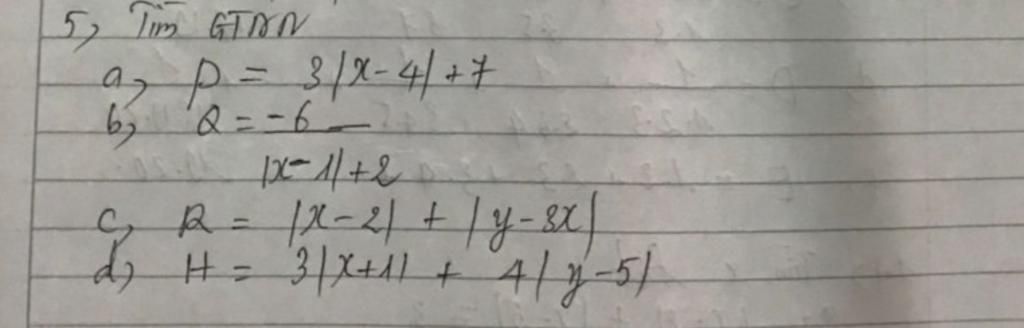 5, Tìm GTNN
a, P = 3|x-4|+7
b, Q = -6
|x-1|+2
c, R = |x-2| + |y-3x|
d, H = 3|x+1| + 4|y-5|